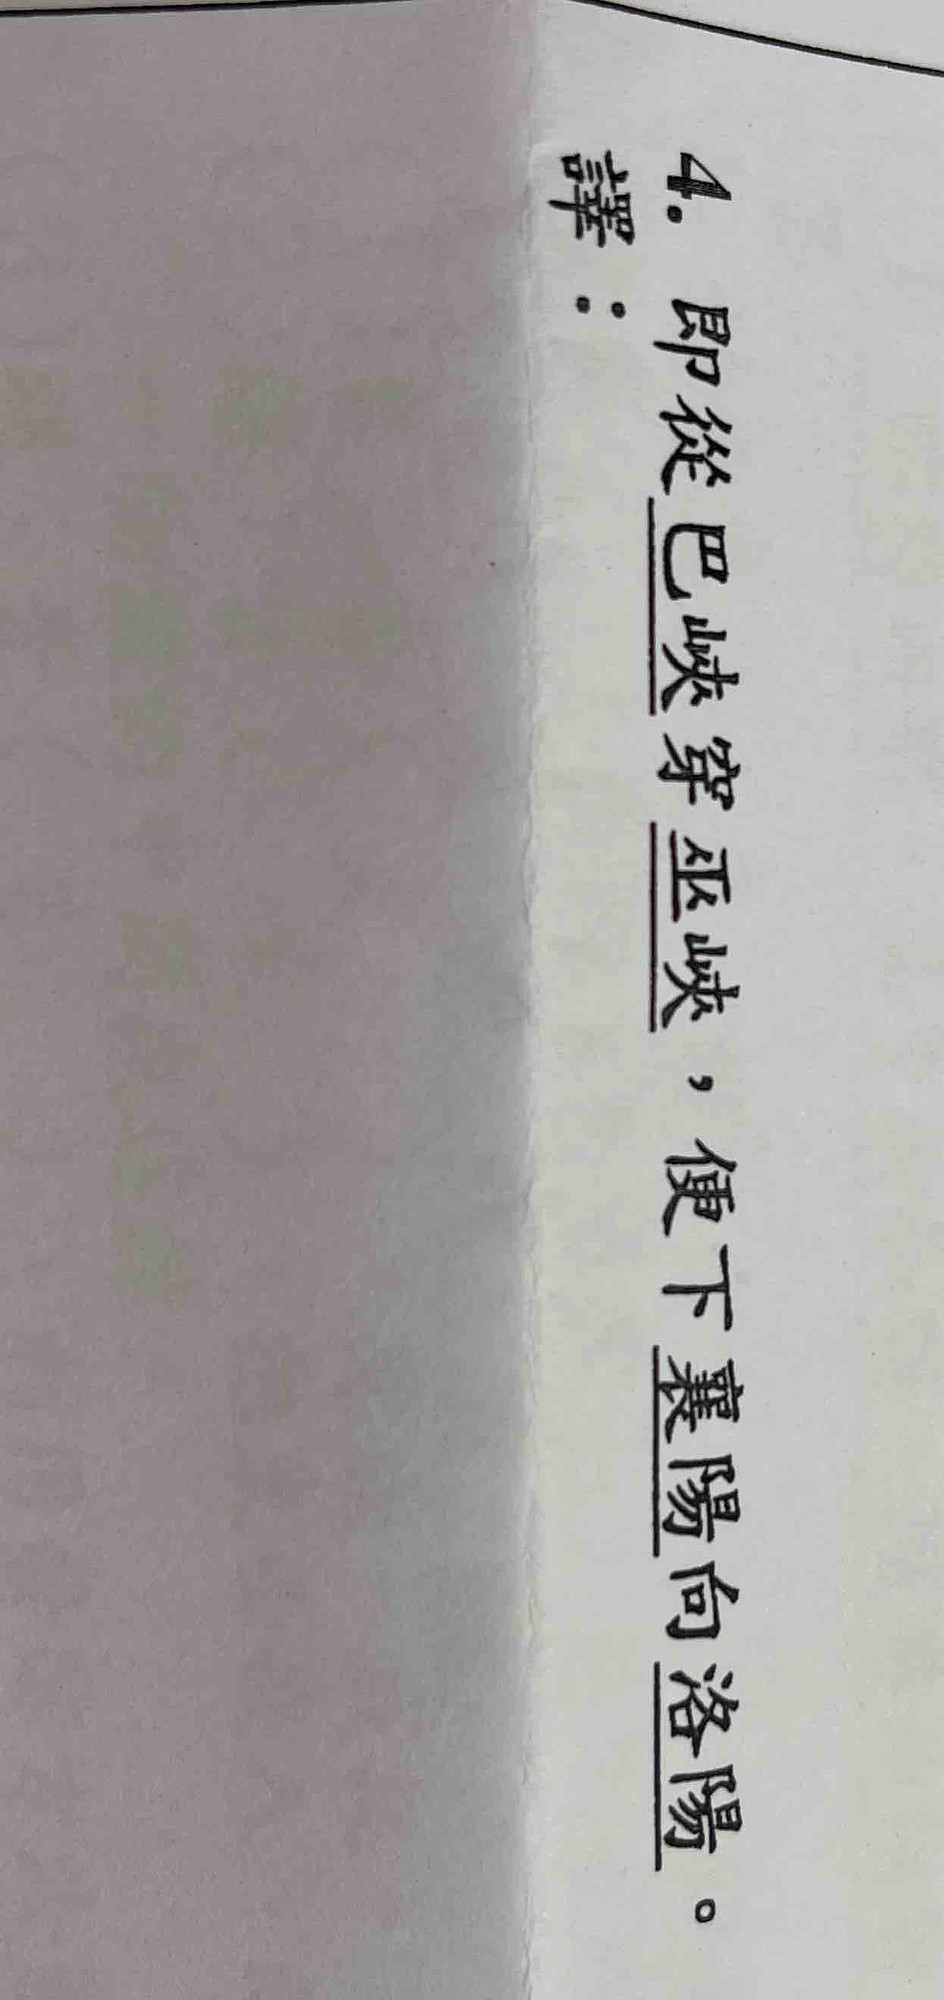 4. 即從巴峽穿巫峽，便下襄陽向洛陽。
譯：